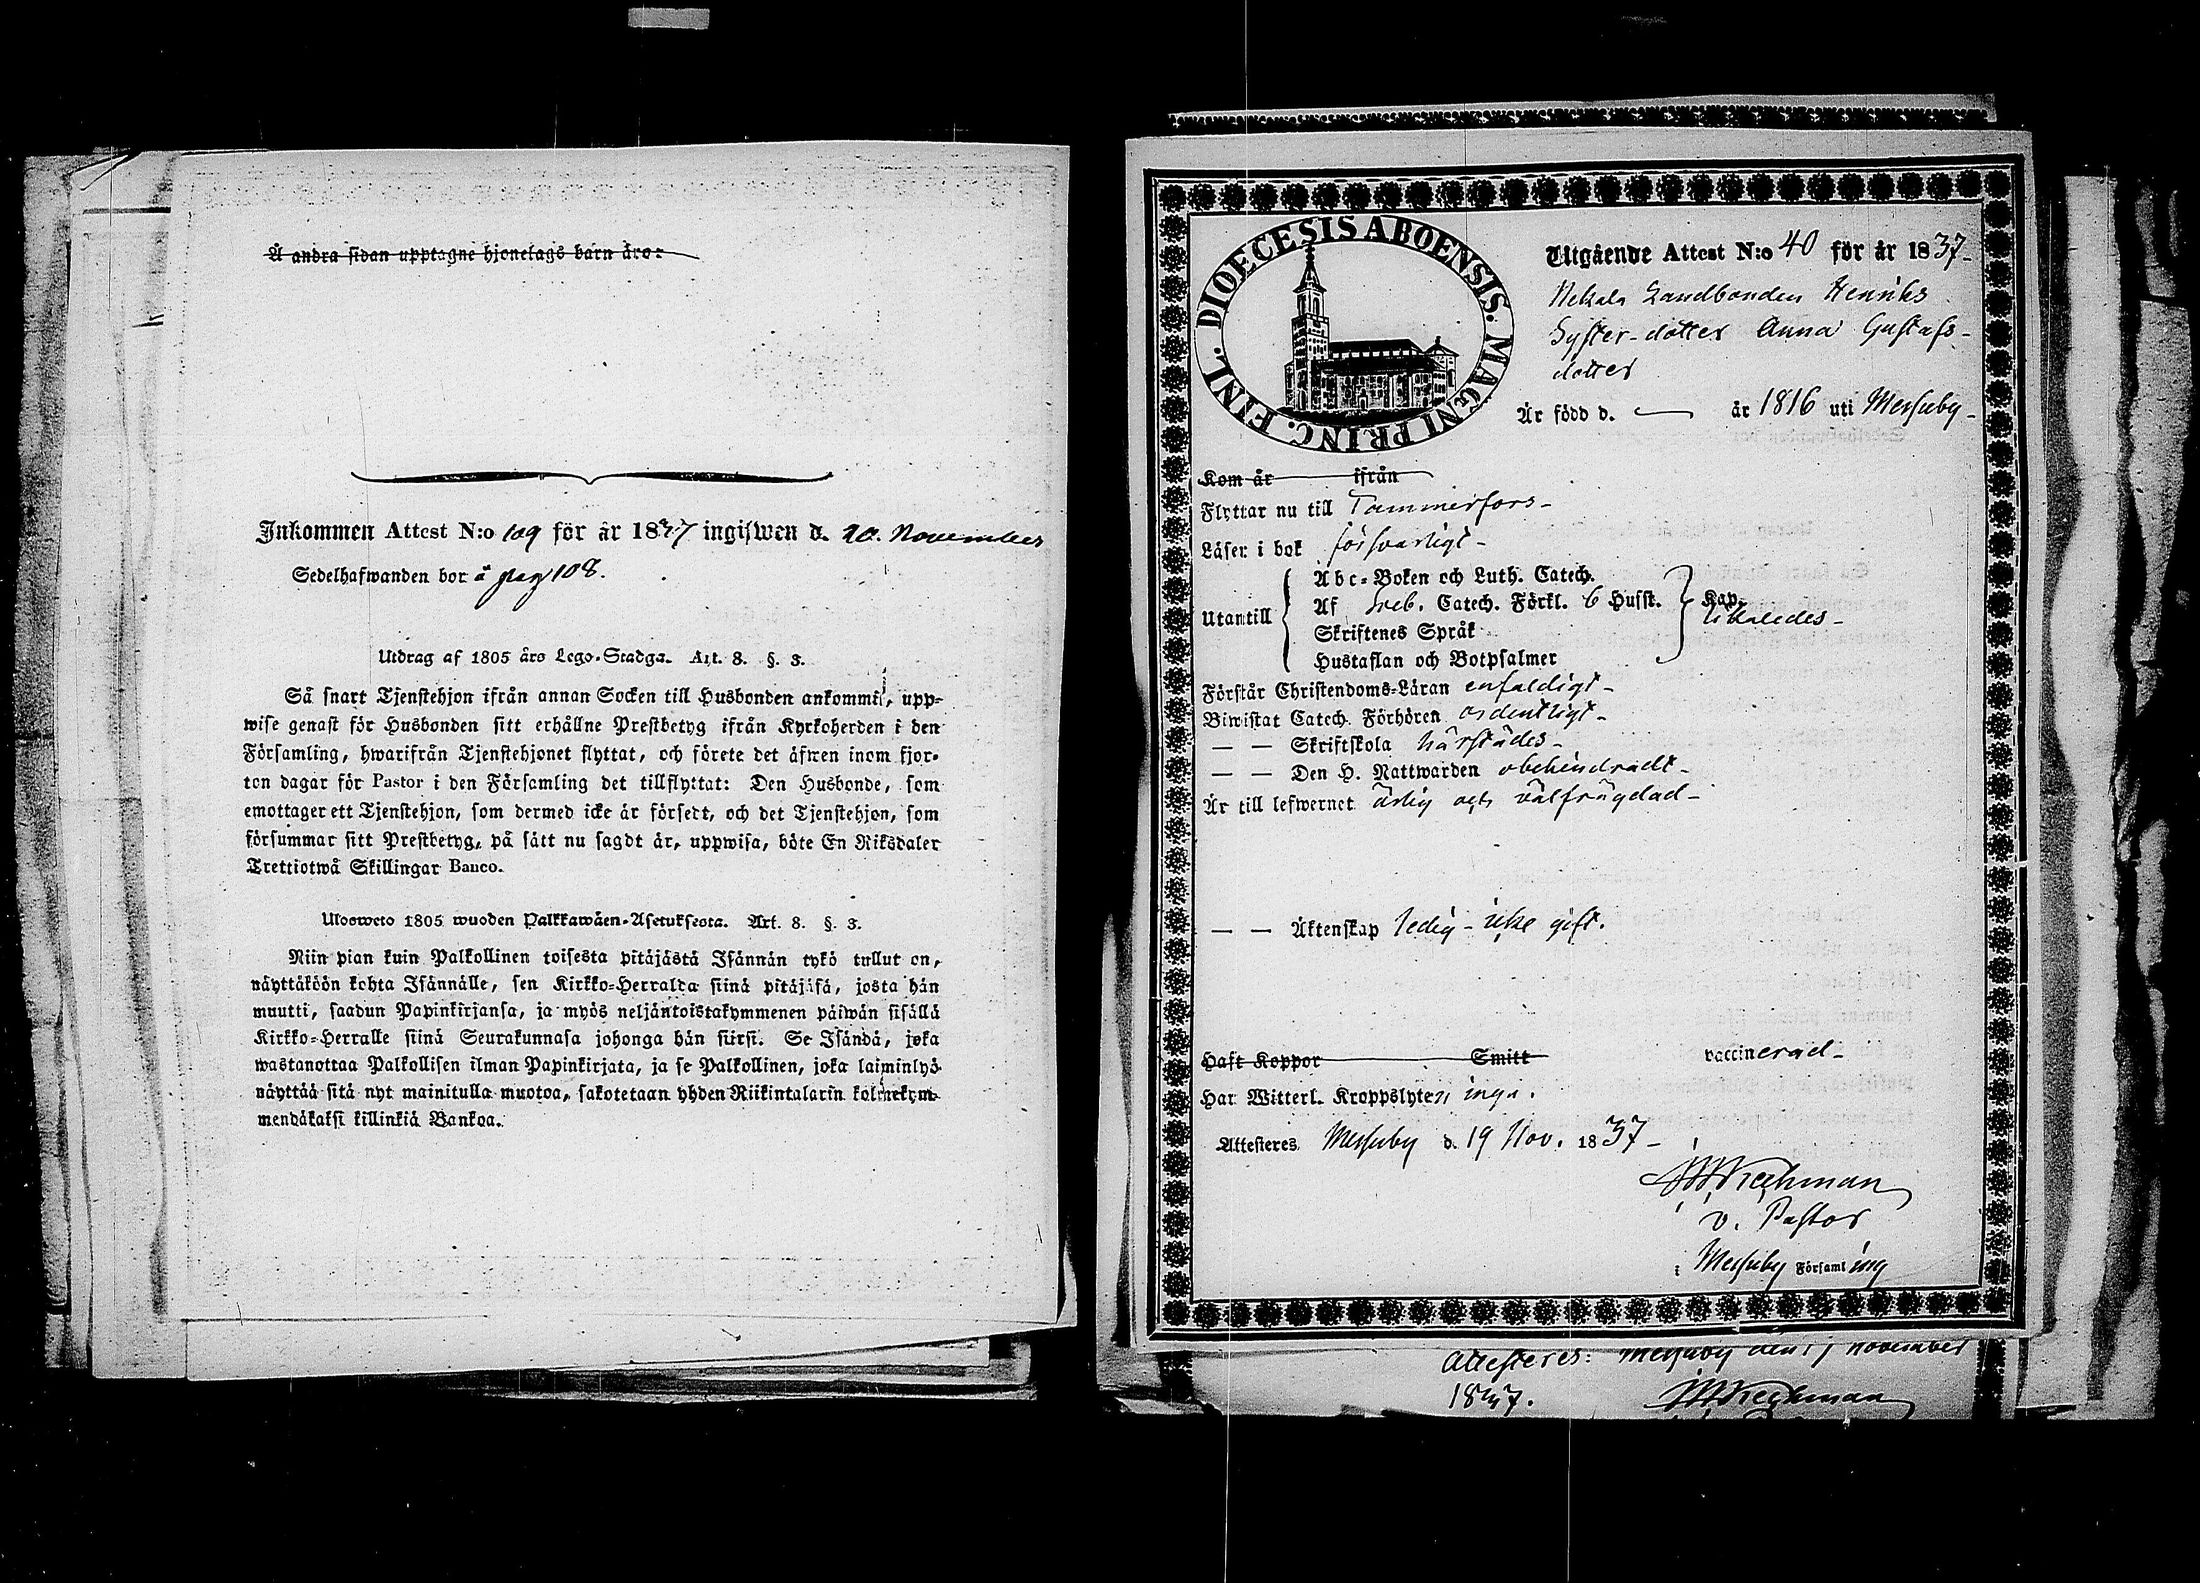 Å andra sidan upptagne hjonelags barn äro:
Inkommen Attest N:o 109 för år 1837 ingifwen d. 20. November
Sedelhafwanden bor å pag 108.
Utdrag af 1805 års Lego-Stadga. Art. 8. §. 3.
Så snart Tjenstehjon ifrån annan Socken till Husbonden ankommit, upp-
wise genast för Husbonden sitt erhållne Prestbetyg ifrån Kyrkoherden i den
Församling, hwarifrån Tjenstehjonet flyttat, och förete det äfwen inom fjor-
ton dagar för Pastor i den Församling det tillflyttat: Den Husbonde, som
emottager ett Tjenstehjon, som dermed icke är försedt, och det Tjenstehjon, som
försummar sitt Prestbetyg, på sätt nu sagdt är, uppwisa, böte En Riksdaler
Trettiotwå Skillingar Banco.
Ulosweto 1805 wuoden Palkkawäen-Asetuksesta. Art. 8. §. 3.
Niin pian kuin Palkollinen toisesta pitäjästä Isännän tykö tullut on,
näyttäköön kohta Isännälle, sen Kirkko-Herralda siinä pitäjäsä, josta hän
muutti, saadun Papinkirjansa, ja myös neljäntoistakymmenen päiwän sisällä
Kirkko-Herralle siinä Seurakunnasa johonga hän siirsi. Se Isändä, joka
wastanottaa Palkollisen ilman Papinkirjata, ja se Palkollinen, joka laiminlyö
näyttää sitä nyt mainitulla muotoa, sakotetaan yhden Riikintalarin kolmekym-
mendäkaksi killinkiä Bankoa.
DIOECESIS ABOENSIS. MAGNI PRINC. FINL.
Utgående Attest N:o 40 för år 1837-
Nekala Landbonden Henriks
Syster-dotter Anna Gustafs-
dotter
Är född d. — år 1816 uti Messuby-
Kom år ifrån
Flyttar nu till Tammerfors-
Läser i bok försvarligt-
Utantill
Abc-Boken och Luth. Catech.
Af Sveb. Catech. Förkl. 6 Husst. Kap.
likaledes-
Skriftenes Språk
Hustaflan och Botpsalmer
Förstår Christendoms-Läran enfaldigt-
Biwistat Catech. Förhören ordentligt-
— — Skriftskola härstädes-
— — Den H. Nattwarden obehindradt-
Är till lefwernet ärlig och välfrägdad-
— — Äktenskap ledig - icke gift.
Haft Koppor Smitt vaccinerad-
Har Witterl. Kroppslyten inga.
Attesteres Messuby d. 19 Nov. 1837-
v. Pastor
i Messuby Församling
Attesteres: Messuby den November
1837.